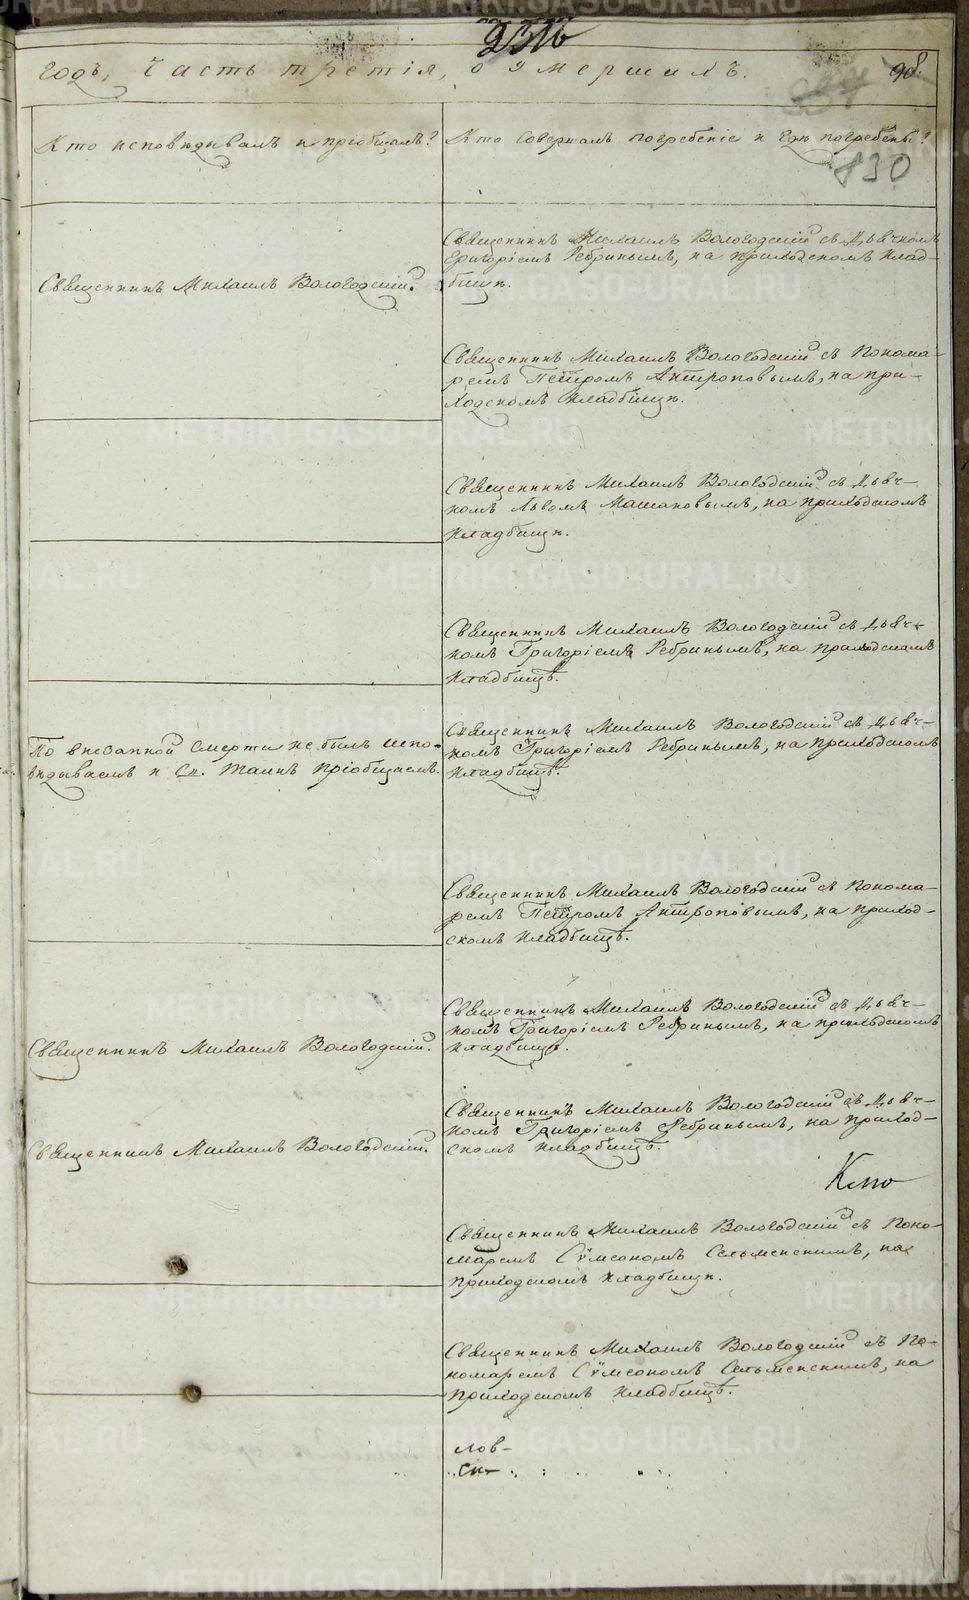 годъ, часть третія, о умершихъ.
98.
830
Кто исповѣдывалъ и пріобщалъ?
Кто совершалъ погребеніе и гдѣ погребены?
Священникъ Михаилъ Вологодскій.
Священникъ Михаилъ Вологодскій съ Дьячкомъ
Григоріемъ Ребринымъ, на приходскомъ клад-
бищѣ.
Священникъ Михаилъ Вологодскій съ Понома-
ремъ Петромъ Антроповымъ, на при-
ходскомъ кладбищѣ.
Священникъ Михаилъ Вологодскій съ Дьяч-
комъ Львомъ Машановымъ, на приходскомъ
кладбищѣ.
Священникъ Михаилъ Вологодскій съ Дьяч-
комъ Григоріемъ Ребринымъ, на приходскомъ
кладбищѣ.
По внезапной смерти не былъ испо-
вѣдываемъ и Св. Таинъ пріобщаемъ.
Священникъ Михаилъ Вологодскій съ Дьяч-
комъ Григоріемъ Ребринымъ, на приходскомъ
кладбищѣ.
Священникъ Михаилъ Вологодскій съ Понома-
ремъ Петромъ Антроповымъ, на приход-
скомъ кладбищѣ.
Священникъ Михаилъ Вологодскій.
Священникъ Михаилъ Вологодскій съ Дьяч-
комъ Григоріемъ Ребринымъ, на приходскомъ
кладбищѣ.
Священникъ Михаилъ Вологодскій.
Священникъ Михаилъ Вологодскій съ Дьяч-
комъ Григоріемъ Ребринымъ, на приход-
скомъ кладбищѣ.
Священникъ Михаилъ Вологодскій съ Поно-
маремъ Сѵмеономъ Сельменскимъ, на
приходскомъ кладбищѣ.
Священникъ Михаилъ Вологодскій съ По-
номаремъ Сѵмеономъ Сельменскимъ, на
приходскомъ кладбищѣ.
лов-
ск-
METRIKI.GASO-URAL.RU